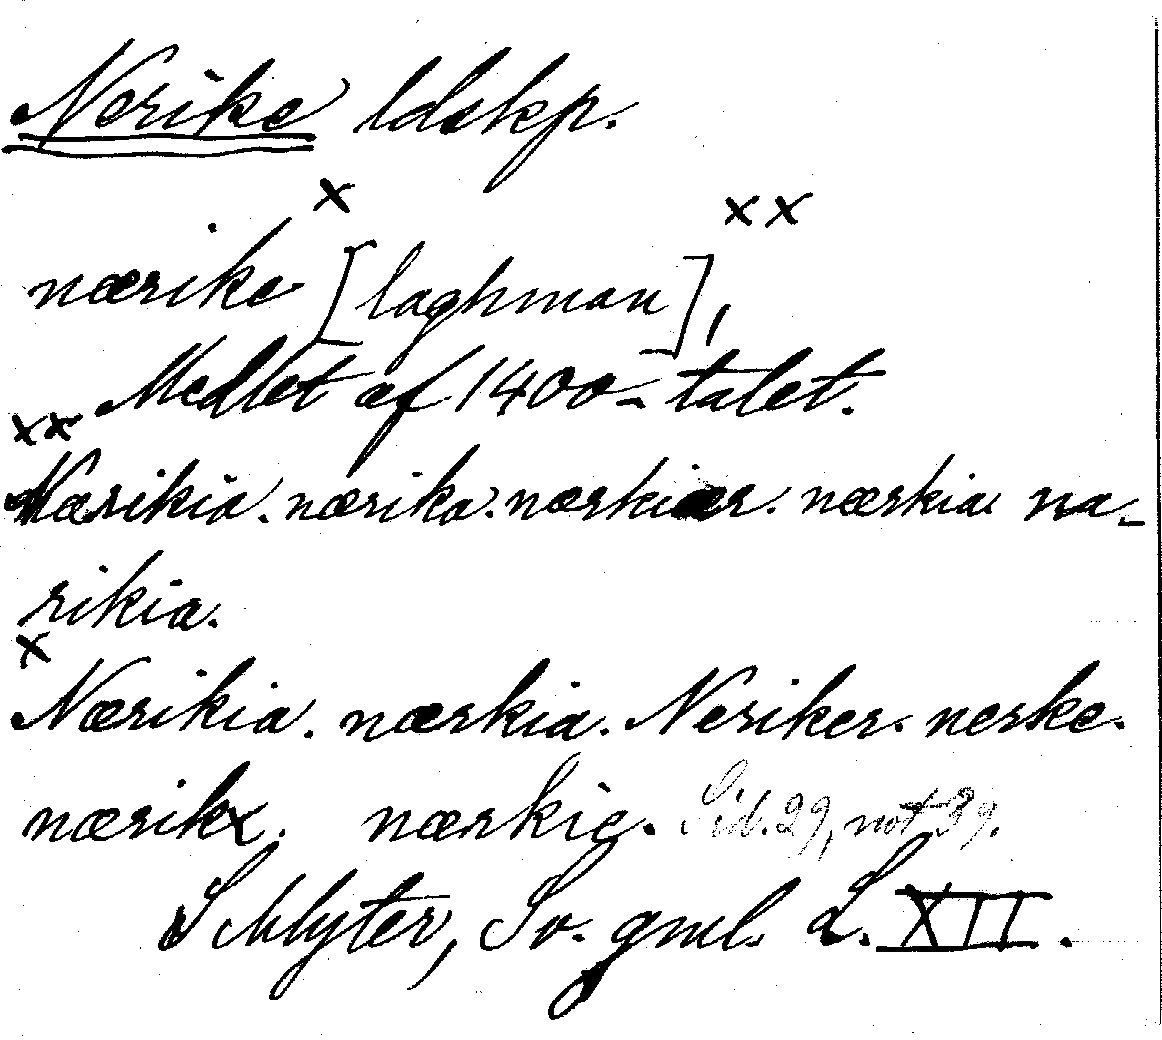 Nerike ldskp.
x xx
nærike [laghman],
Medlet af 1400-talet.
xx
Nærikia. nærika. nærkiær. nærkia na-
rikia.
x
Nærikia. nærkia. Neriker. nerke.
nærikæ. nærkie. Sid. 29, not 39.
Schlyter, Sv. gml. L. XII.